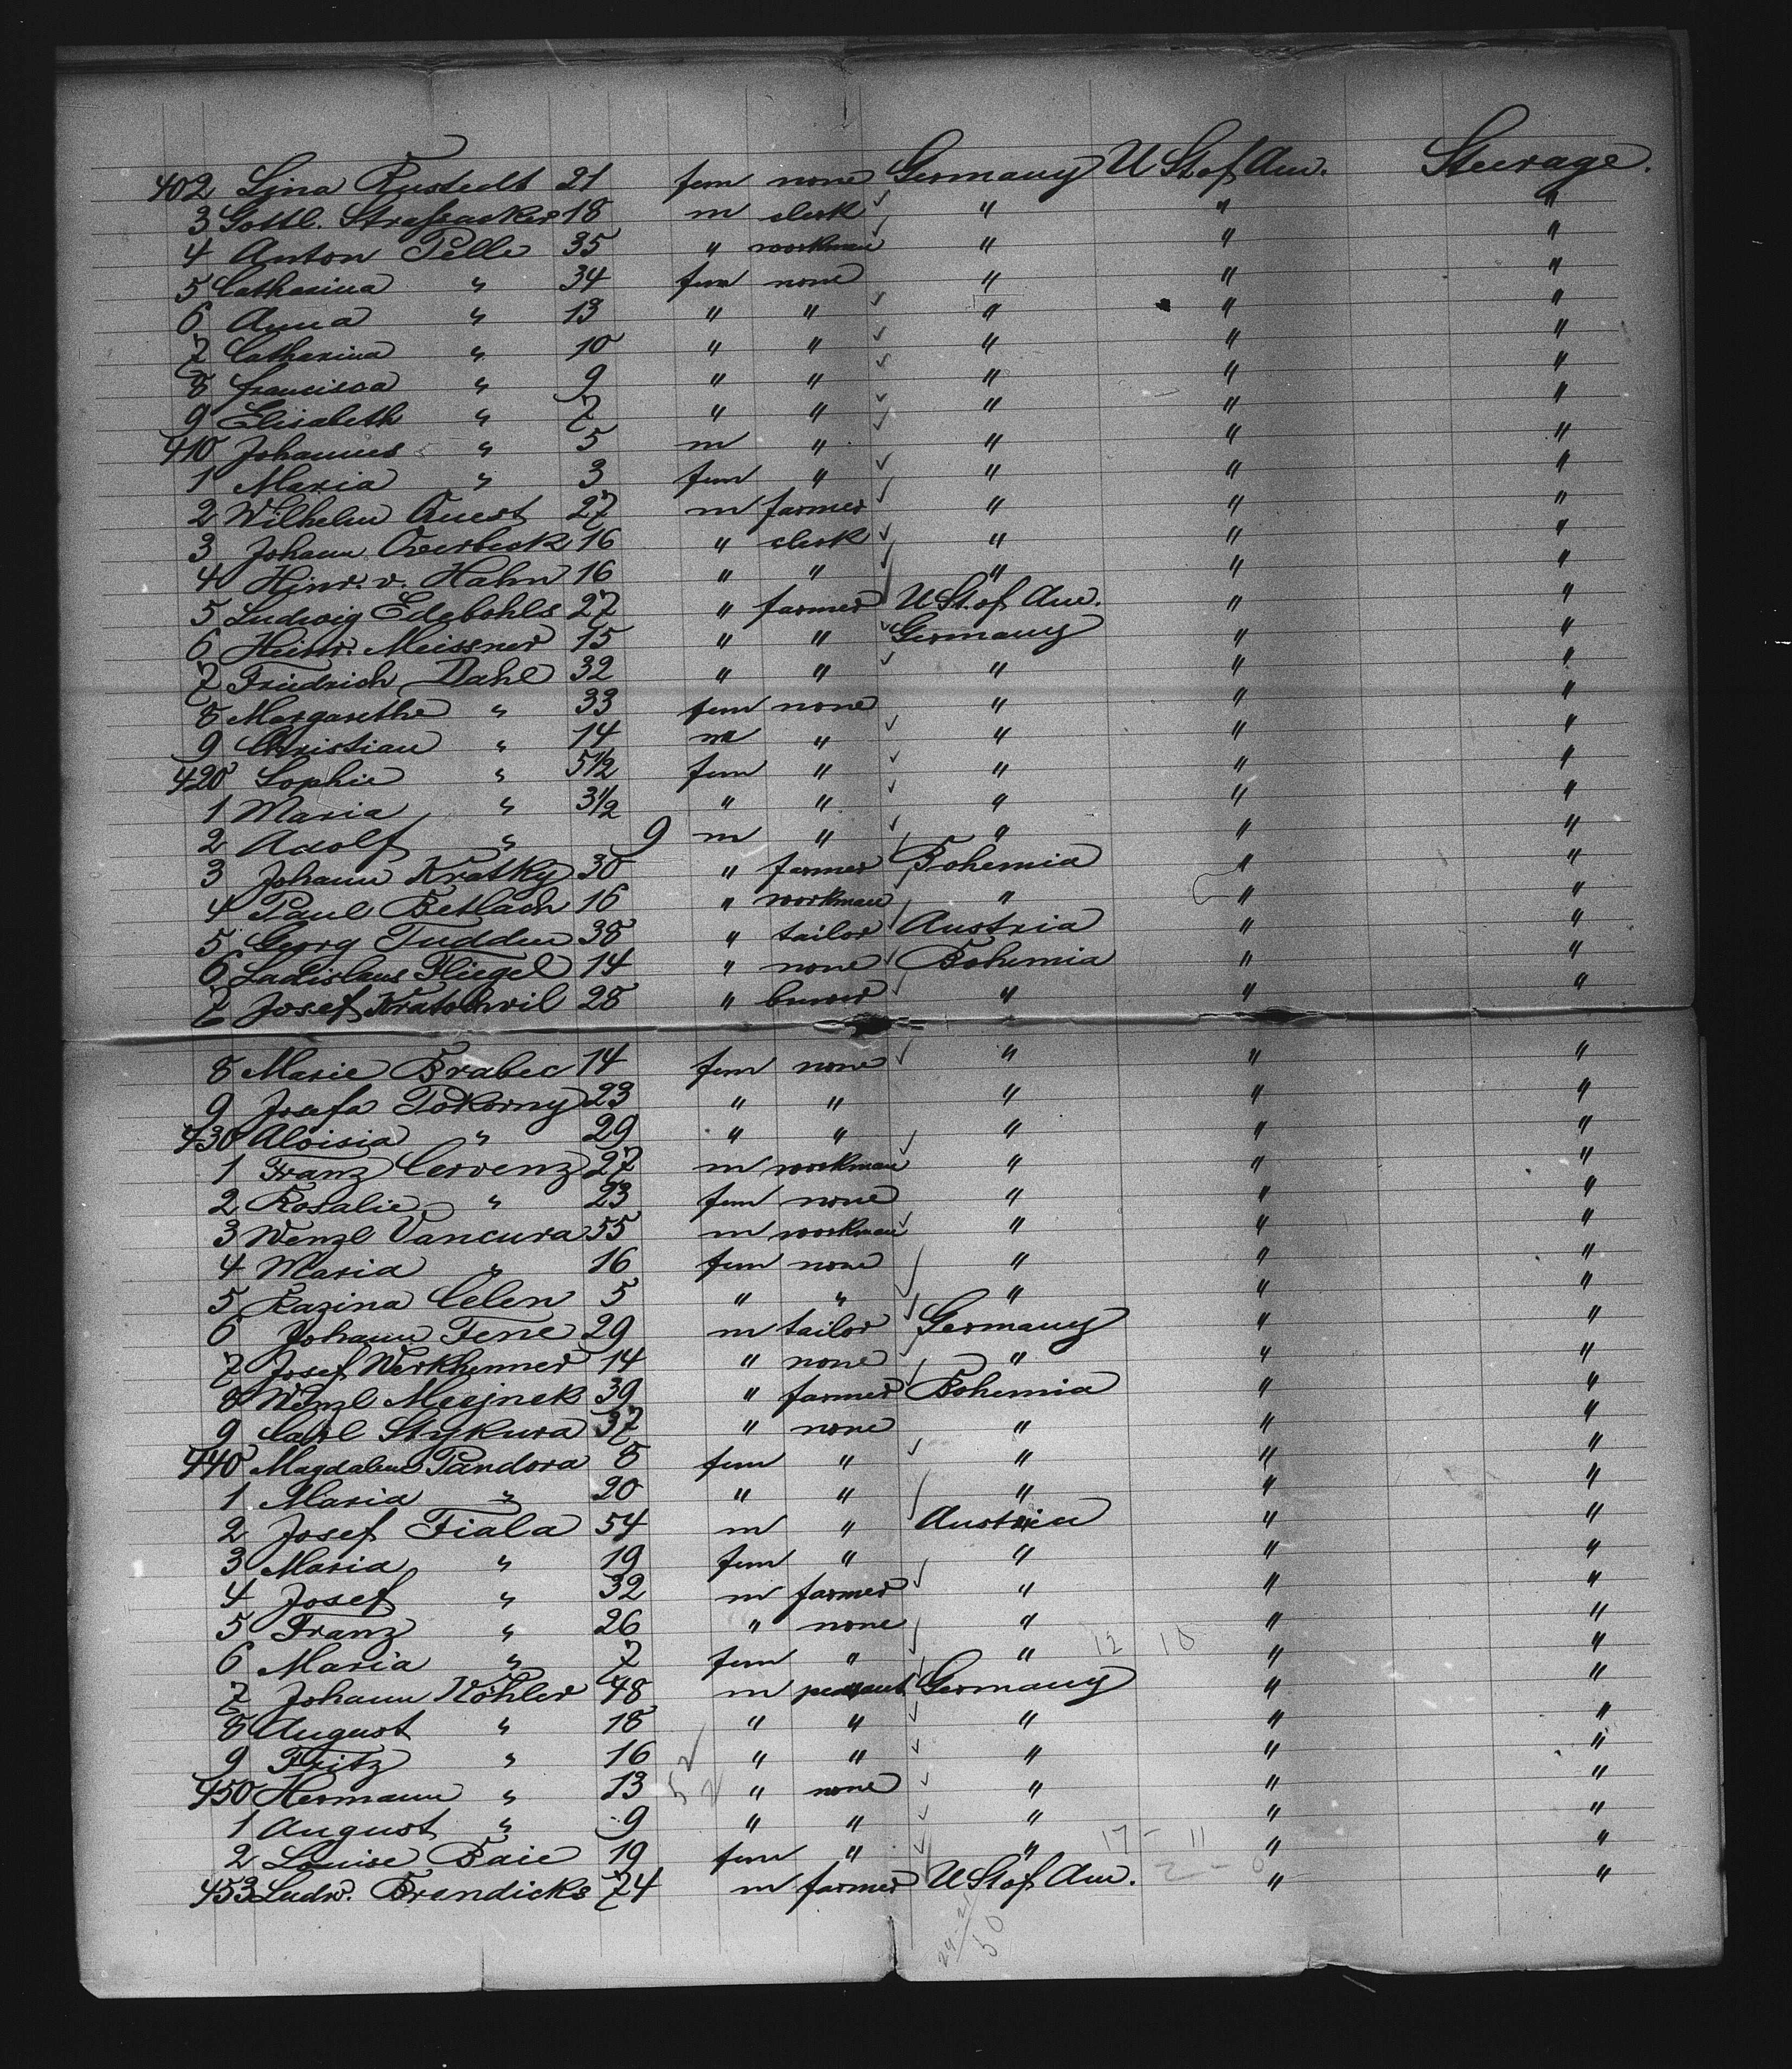 402 Lina Rustedt 21 fem none Germany U St of Am. Steerage.
3 Gottl. Strassacker 18 m clerk " " "
4 Anton Pelle 35 " workman " " "
5 Catharina " 34 fem none " " "
6 Anna " 13 " " " " "
7 Catharina " 10 " " " " "
8 Francisca " 9 " " " " "
9 Elisabeth " 7 " " " " "
410 Johannes " 5 m " " " "
1 Maria " 3 fem " " " "
2 Wilhelm Quest 27 m farmer " " "
3 Johann Overbeck 16 " clerk " " "
4 Hinr. v. Hahn 16 " " " " "
5 Ludwig Edebohls 27 " farmer U St. of Am. " "
6 Heinr. Meissner 15 " " Germany " "
7 Friedrich Dahl 32 " " " " "
8 Margarethe " 33 fem none " " "
9 Christian " 14 m " " " "
420 Sophie " 5 1/2 fem " " " "
1 Maria " 3 1/2 " " " " "
2 Adolf " 9 m " " " "
3 Johann Kratky 30 " farmer Bohemia " "
4 Paul Betlach 16 " workman " " "
5 Georg Tudden 38 " tailor Austria " "
6 Ladislaus Fliegel 14 " none Bohemia " "
7 Josef Kratochvil 28 " " " "
8 Marie Brabec 14 fem none " " "
9 Josefa Pokorny 23 " " " " "
430 Aloisia " 29 " " " " "
1 Franz Cervenz 27 m workman " " "
2 Rosalie " 23 fem none " " "
3 Wenzl Vancura 55 m workman " " "
4 Maria " 16 fem none " " "
5 Razina Celen 5 " " " " "
6 Johann Fene 29 m tailor Germany " "
7 Josef Werkhenner 14 " none " " "
8 Wenzl Mesjnek 39 " farmer Bohemia " "
9 Carl Stykura 37 " none " " "
440 Magdalena Pandora 8 fem " " " "
1 Maria " 20 " " " " "
2 Josef Fiala 54 m " Austria " "
3 Maria " 19 fem " " " "
4 Josef " 32 m farmer " " "
5 Franz " 26 " none " " "
6 Maria " 7 fem " " 12 18 " "
7 Johann Köhler 48 m peasant Germany " "
8 August " 18 " " " " "
9 Fritz " 16 " " " " "
450 Hermann " 13 " none " " "
1 August " 9 " " " " "
2 Louise Baie 19 fem " " 17 - 11 " "
453 Ludw. Brendicks 24 m farmer U St of Am. 2 - 0 " "
50